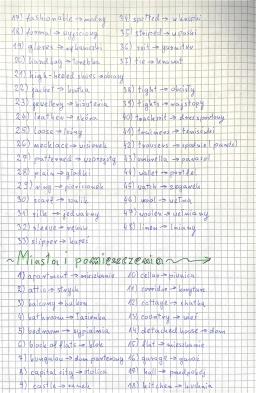 17) fashionable → modny
18) formal → wyjściowy
19) gloves → rękawiczki
20) handbag → torebka
21) high-heeled shoes → obcasy
22) jacket → kurtka
23) jewellery → biżuteria
24) leather → skóra
25) loose → luźny
26) necklace → wisiorek
27) patterned → wzorzysty
28) plain → gładki
29) ring → pierścionek
30) scarf → szalik
31) silk → jedwabny
32) sleeve → rękaw
33) slipper → kapeć
34) spotted → w kropki
35) striped → w paski
36) suit → garnitur
37) tie → krawat
38) tight → obcisły
39) tights → rajstopy
40) tracksuit → dres sportowy
41) trainers → tenisówki
42) trousers → spodnie (pants)
43) umbrella → parasol
44) wallet → portfel
45) watch → zegarek
46) wool → wełna
47) woolen → wełniany
48) linen → lniany
Miasto i pomieszczenia
1) apartment → mieszkanie
2) attic → strych
3) balcony → balkon
4) bathroom → łazienka
5) bedroom → sypialnia
6) block of flats → blok
7) bungalow → dom parterowy
8) capital city → stolica
9) castle → zamek
10) cellar → piwnica
11) corridor → korytarz
12) cottage → chatka
13) country → wieś
14) detached house → dom
15) flat → mieszkanie
16) garage → garaż
17) hall → przedpokój
18) kitchen → kuchnia